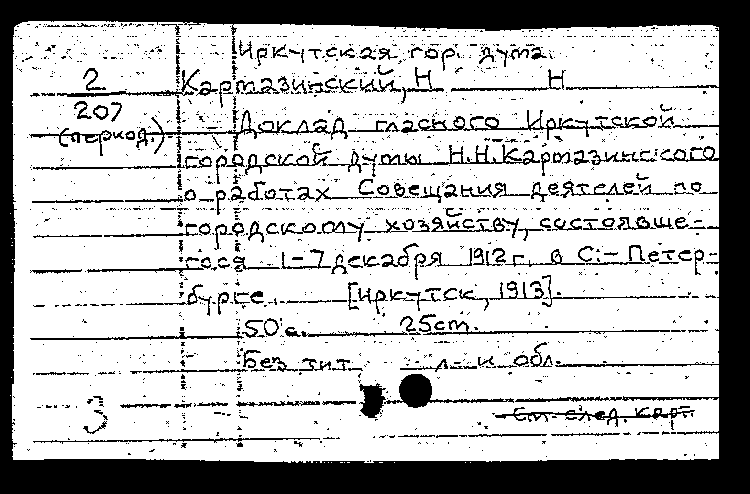 Иркутская гор. дума.
2
207
(период.)
Картазинский, Н. Н
Доклад гласного Иркутской
городской думы Н.Н. Картазинского
о работах Совещания деятелей по
городскому хозяйству, состоявше-
гося 1-7 декабря 1912 г. в С.-Петер-
бурге. [Иркутск, 1913].
50 с. 25 cm.
Без тит. л. и обл.
3
См. след. карт.